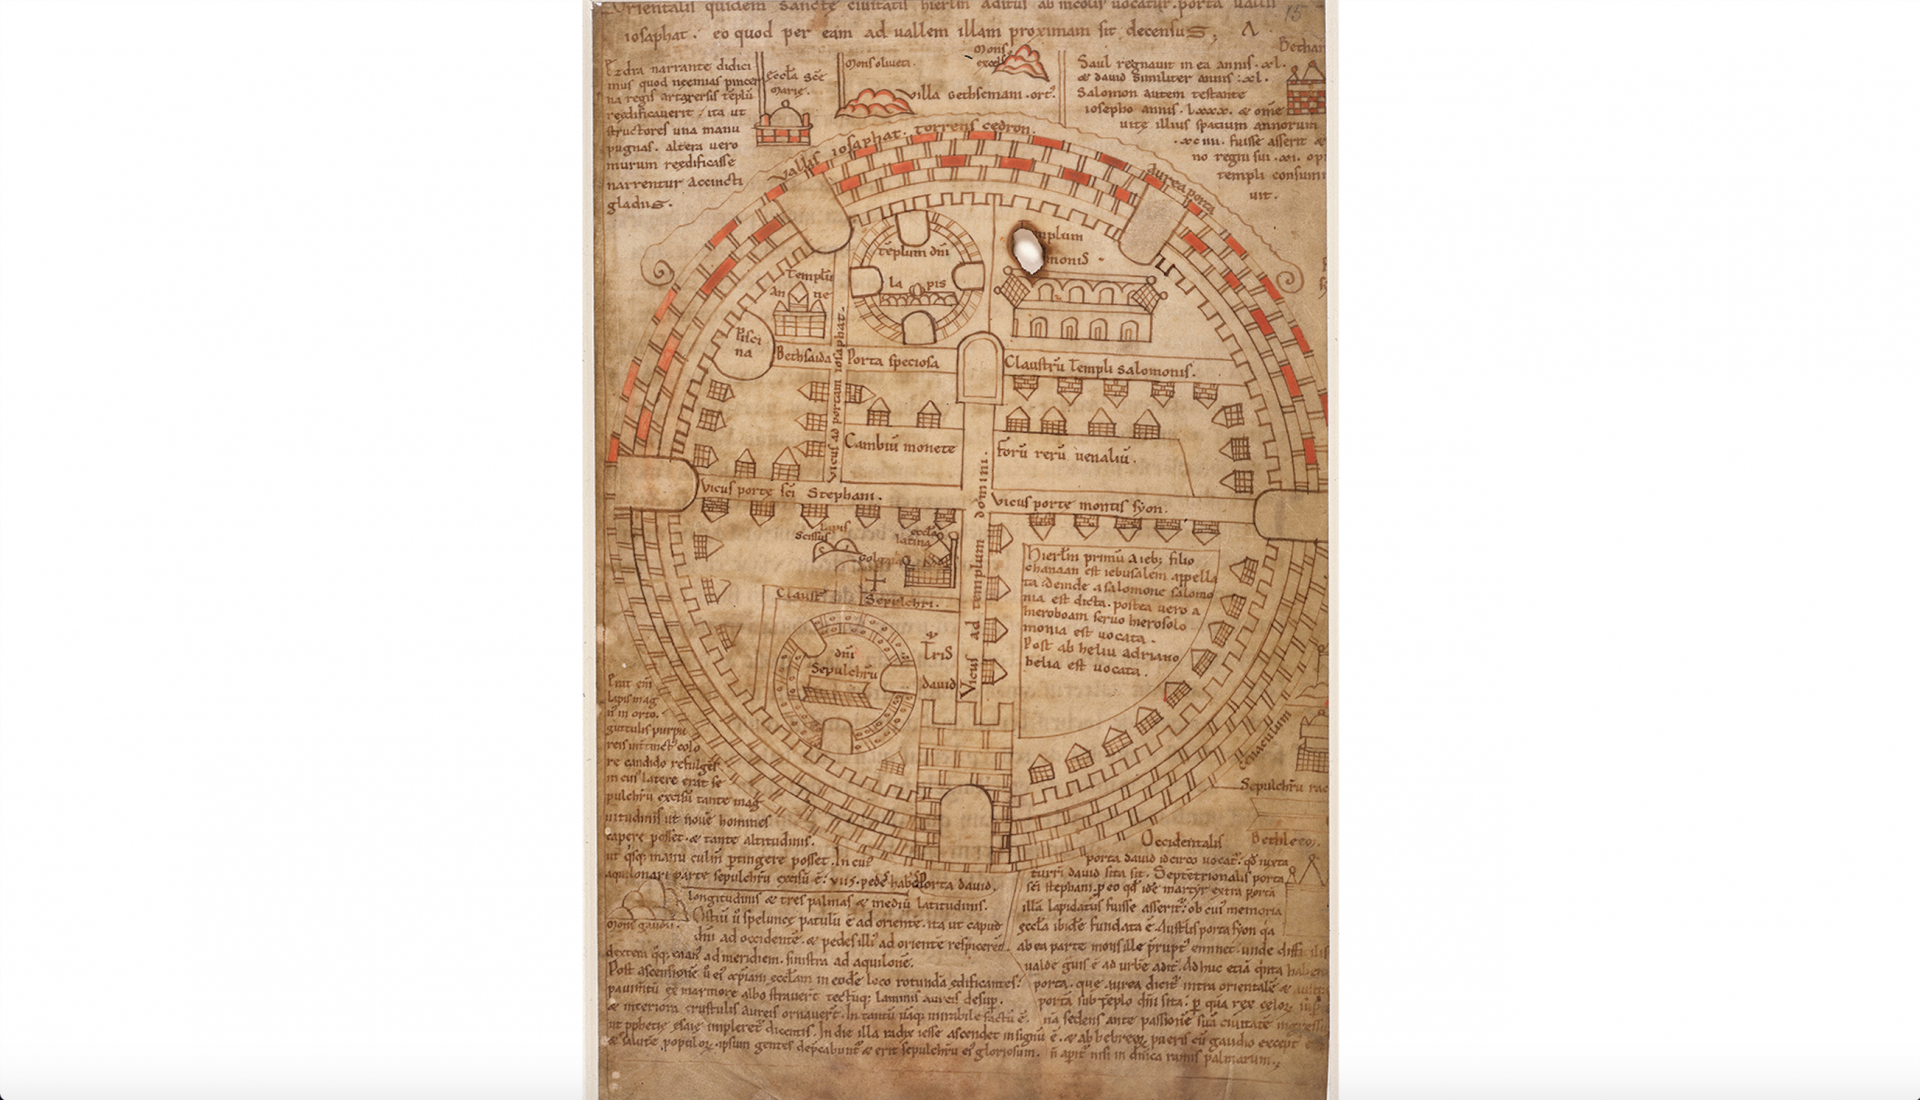 Orientalis quidem sancte ciuitatis hierlm aditus ab incolis uocatur. porta uallis
iosaphat. eo quod per eam ad uallem illam proximam sit decensus;
Ezdra narrante didici
mus quod neemias pincer
na regis artarersis tēplū
reędificauerit / ita ut
structores una manu
pugnas. altera uero
murum reędificasse
narrentur Accincti
gladiis.
ęccła scē
marię.
mons oliueti.
mons
excels
uilla Gethsemani .ort⁹.
Bethan
Saul regnauit in ea annis .xl.
& dauid similiter annis :xl.
Salomon autem testante
iosepho annis .lxxx. & om̄e
uite illius spatium annorum
.xciiii. fuisse asserit &
no regni sui .xi. op
templi consum
uit.
Vallis iosaphat. torrens cedron.
Aurea porta
templum
monis
tēplum dn̄i
la pis
Templū
an ne
Pisci
na
Bethsaida
Porta speciosa
Claustrū Templi salomonis.
uicus ad portam iosaphat.
Cambiū monete
forū rerū uenaliū.
Vicus portę sc̄i Stephani.
Vicus porte montis syon.
lapis
scissus
ęccła
latina
Golg
Claust
Sepulchri.
Vicus ad templum domini.
Hierłm primū A ieb; filio
chanaan est iebusalem appella
ta :deinde a salomone salomo
nia est dicta. postea uero a
hieroboam seruo hierosolo
monia est uocata.
Post ab heliu adriano
helia est uocata.
dn̄i
Sepulchrū
Tris
dauid
Erat em̄
lapis mag
n⁹ in orto.
guttulis purpu
reis intinct⁹ colo
re candido refulgēs
in cui⁹ latere erat se
pulchrū excisū tante mag
nitudinis ut nouē homines
capere posset. & tante altitudinis.
ut q̄sq; manu culm̄ ptingere posset. In cui⁹
aquilonari parte sepulchrū excisū ē: vii.pedē hab
Porta dauid.
longitudinis & tres palmas & mediū latitudinis.
Ostiū ū speluncę patulū ē ad oriente. ita ut capud
dn̄i ad occidentē. & pedes illi⁹ ad oriente respicerēt
dextera q̄q; ad meridiem. sinistra ad aquilonē.
mons gaudii.
Post ascensionē ū ei⁹ xpiani ęccłam in eodē loco rotunda edificantes:
pauim̄tū ex marmore albo strauert tectūq; laminis aureis desup.
& interiora crustulis aureis ornauert. In tantū mirabile factū ē.
ut pphetię esaię impleret⁹ dicentis. In die illa radix iesse ascendet in signū
& salutē populor. ipsum gentes depcabunt⁹ & erit sepulchrū ei⁹ gloriosum.
Cenaculum
Sepulchrū rac
Occidentalis
Bethleē.
porta dauid idcirco uocat⁹. q̄d iuxta
turrī dauid sita sit. Septētrionalis porta
sc̄i stephani. p eo q̄d idē martyr extra portā
illā lapidatus fuisse asserit⁹: ob cui⁹ memoria
ęccła ibidē fundata ē. Austlis porta syon q̄a
ab ea parte mons ille prupt⁹ eminet. unde
ualde ē ad urbē adit⁹. Adhuc etiā q̄inta
porta. que aurea dicit⁹ intra orientalē &
porta sub tēplo dn̄i sita. p qua rex celor.
na sedens ante passionē suā ciuitatē
ē. & ab hebreor pueris cū gaudio except⁹
n̄ apit⁹ nisi in dn̄ica ramis palmarum.